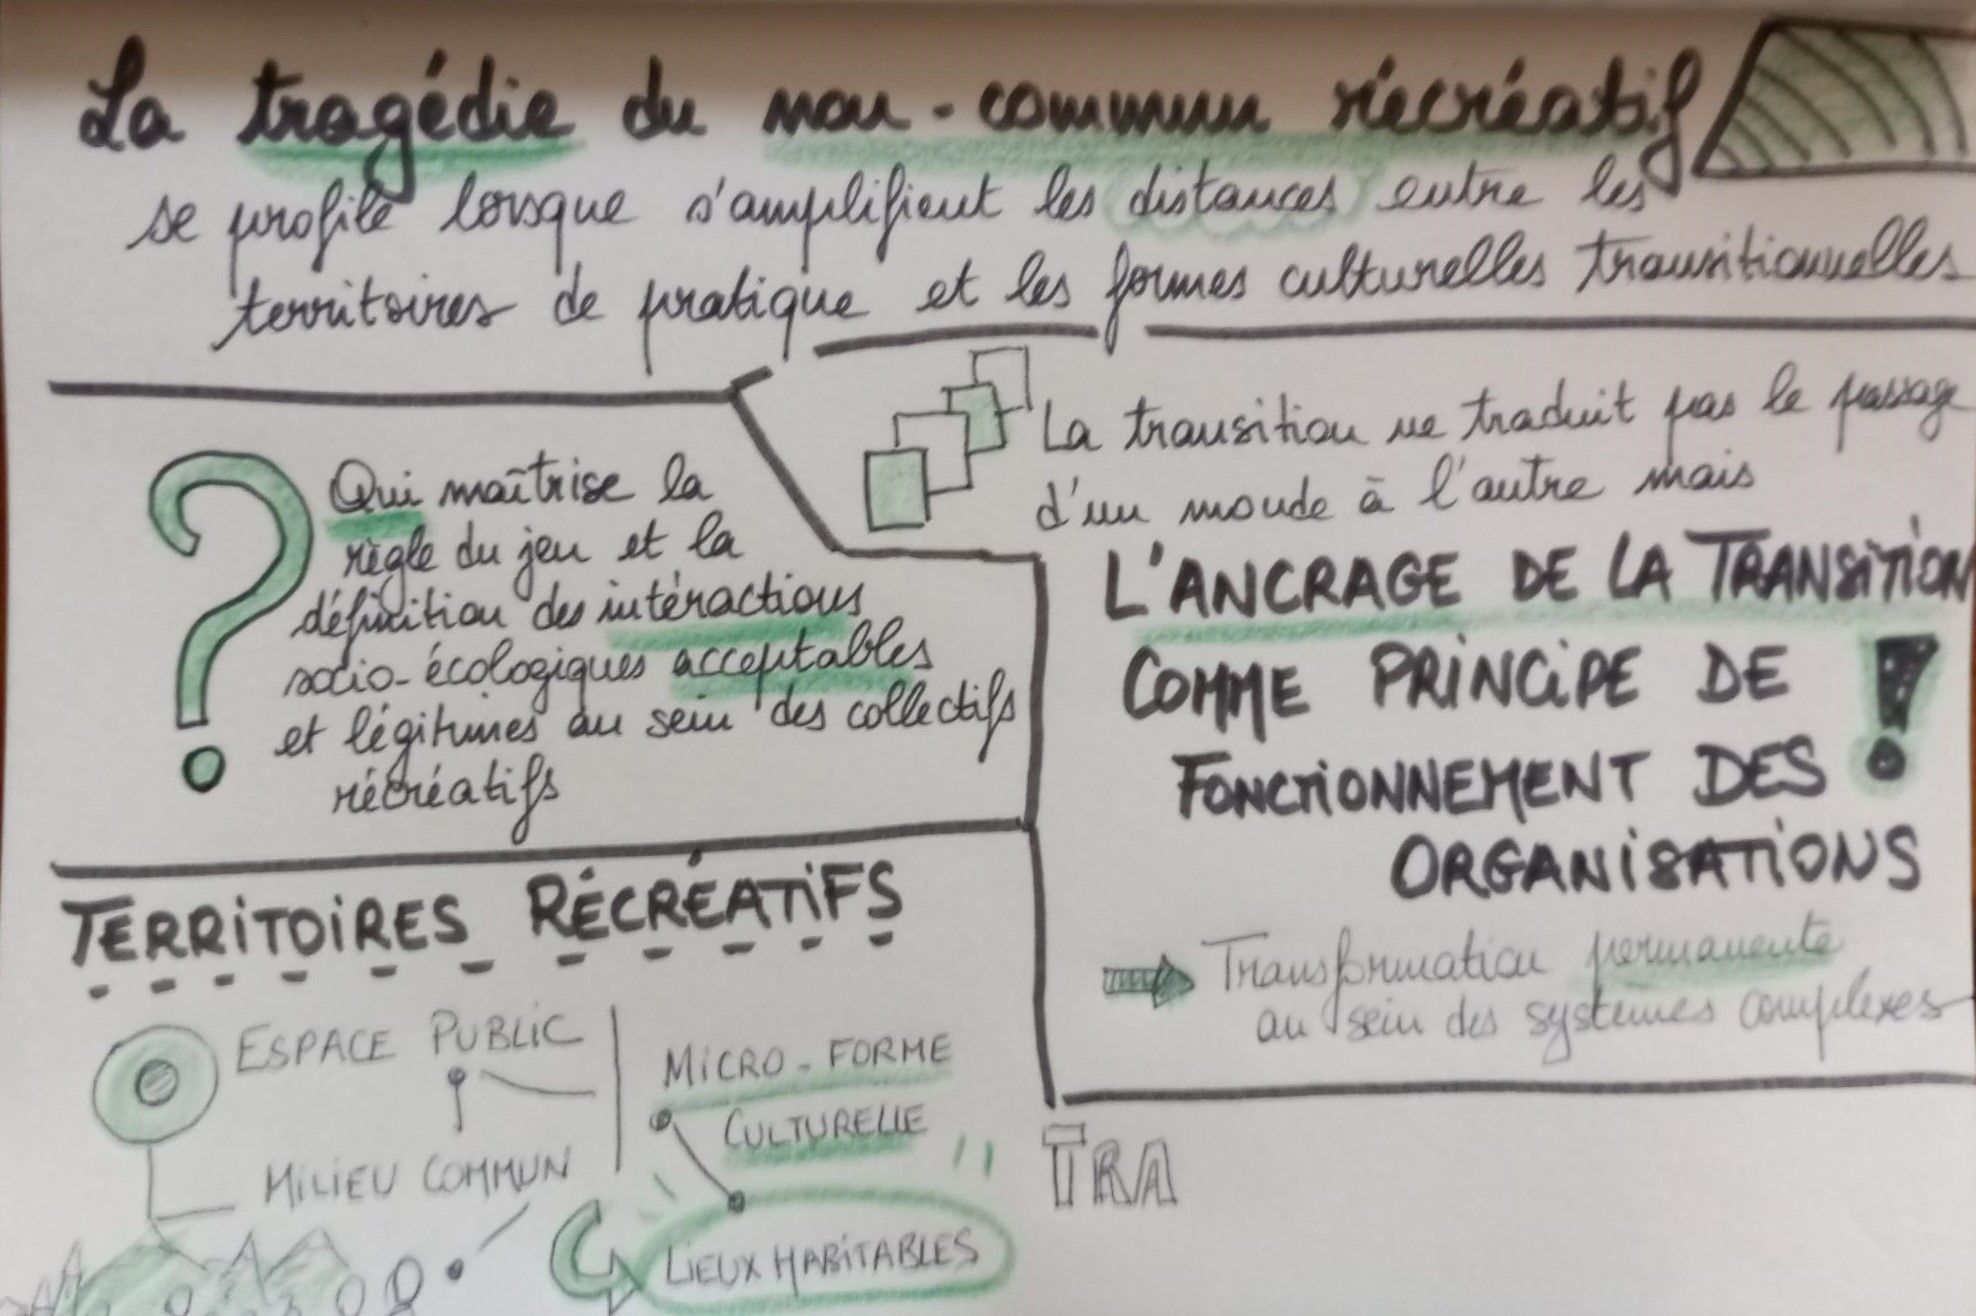 La tragédie du non-commun récréatif
se profile lorsque s'amplifient les distances entre les
territoires de pratique et les formes culturelles transitionnelles
La transition ne traduit pas le passage
d'un monde à l'autre mais
L'ANCRAGE DE LA TRANSITION
COMME PRINCIPE DE
FONCTIONNEMENT DES
ORGANISATIONS
!
Transformation permanente
au sein des systèmes complexes
?
Qui maîtrise la
règle du jeu et la
définition des intéractions
socio-écologiques acceptables
et légitimes au sein des collectifs
récréatifs
TERRITOIRES RÉCRÉATIFS
ESPACE PUBLIC
MILIEU COMMUN
MICRO-FORME
CULTURELLE
LIEUX HABITABLES
TRA